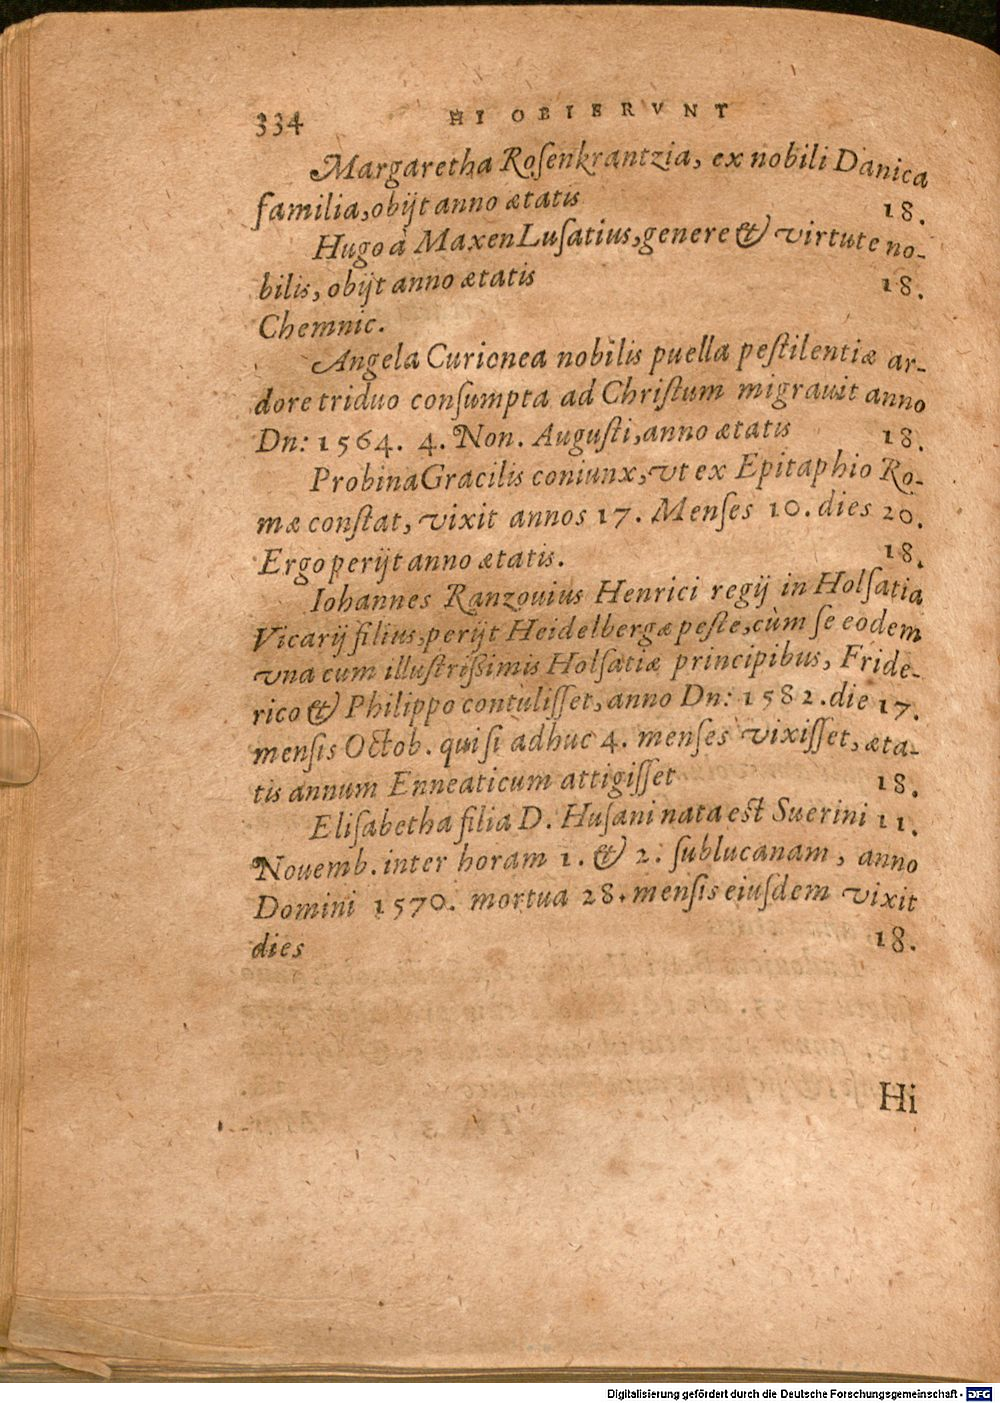 334 HI OBIERVNT
Margaretha Roſenkrantzia, ex nobili Danica
familia, obijt anno ætatis 18.
Hugo à Maxen Luſatius, genere & virtute no-
bilis, obijt anno ætatis 18.
Chemnic.
Angela Curionea nobilis puella peſtilentiæ ar-
dore triduo conſumpta ad Chriſtum migrauit anno
Dn: 1564. 4. Non. Auguſti, anno ætatis 18.
Probina Gracilis coniunx, vt ex Epitaphio Ro-
mæ conſtat, vixit annos 17. Menſes 10. dies 20.
Ergo perijt anno ætatis. 18.
Iohannes Ranzouius Henrici regij in Holſatia
Vicarij filius, perijt Heidelbergæ peſte, cùm ſe eodem
vna cum illuſtriſſimis Holſatiæ principibus, Fride-
rico & Philippo contuliſſet, anno Dn: 1582. die 17.
menſis Octob. qui ſi adhuc 4. menſes vixiſſet, æta-
tis annum Enneaticum attigiſſet 18.
Eliſabetha filia D. Huſani nata eſt Suerini 11.
Nouemb. inter horam 1. & 2. ſublucanam, anno
Domini 1570. mortua 28. menſis eiuſdem vixit
dies 18.
Hi
Digitalisierung gefördert durch die Deutsche Forschungsgemeinschaft - DFG